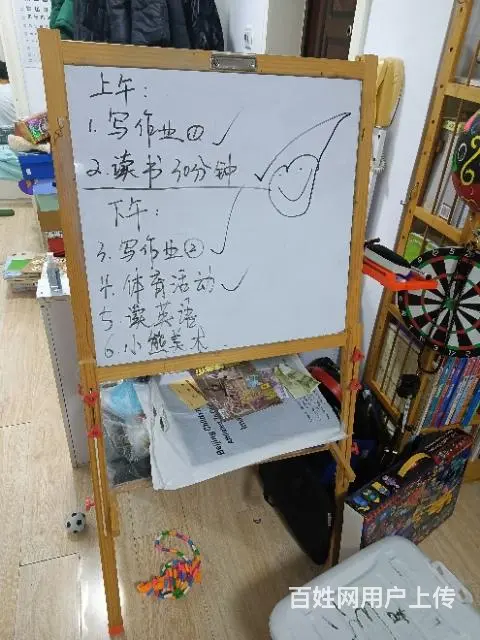 上午：
1.写作业① ✓
2.读书30分钟 ✓
下午：
3.写作业② ✓
4.体育活动 ✓
5 读英语
6.小熊美术.
Beijing Children
百姓网用户上传